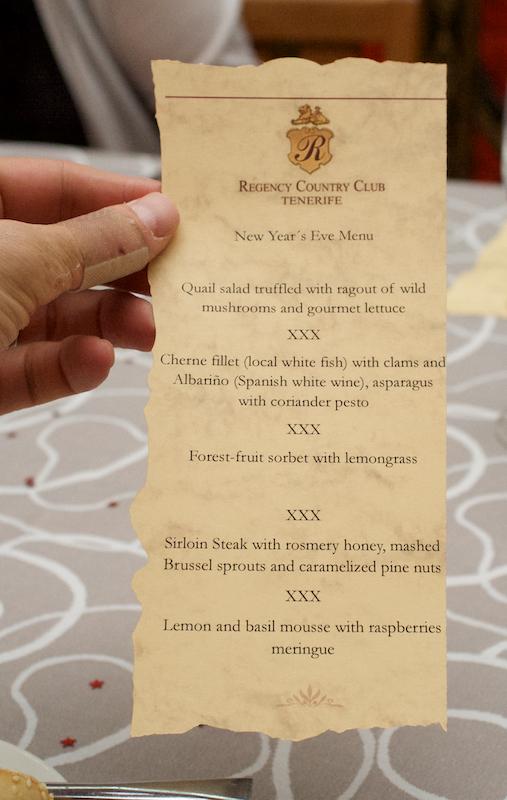 R
REGENCY COUNTRY CLUB
TENERIFE
New Year´s Eve Menu
Quail salad truffled with ragout of wild
mushrooms and gourmet lettuce
XXX
Cherne fillet (local white fish) with clams and
Albariño (Spanish white wine), asparagus
with coriander pesto
XXX
Forest-fruit sorbet with lemongrass
XXX
Sirloin Steak with rosmery honey, mashed
Brussel sprouts and caramelized pine nuts
XXX
Lemon and basil mousse with raspberries
meringue